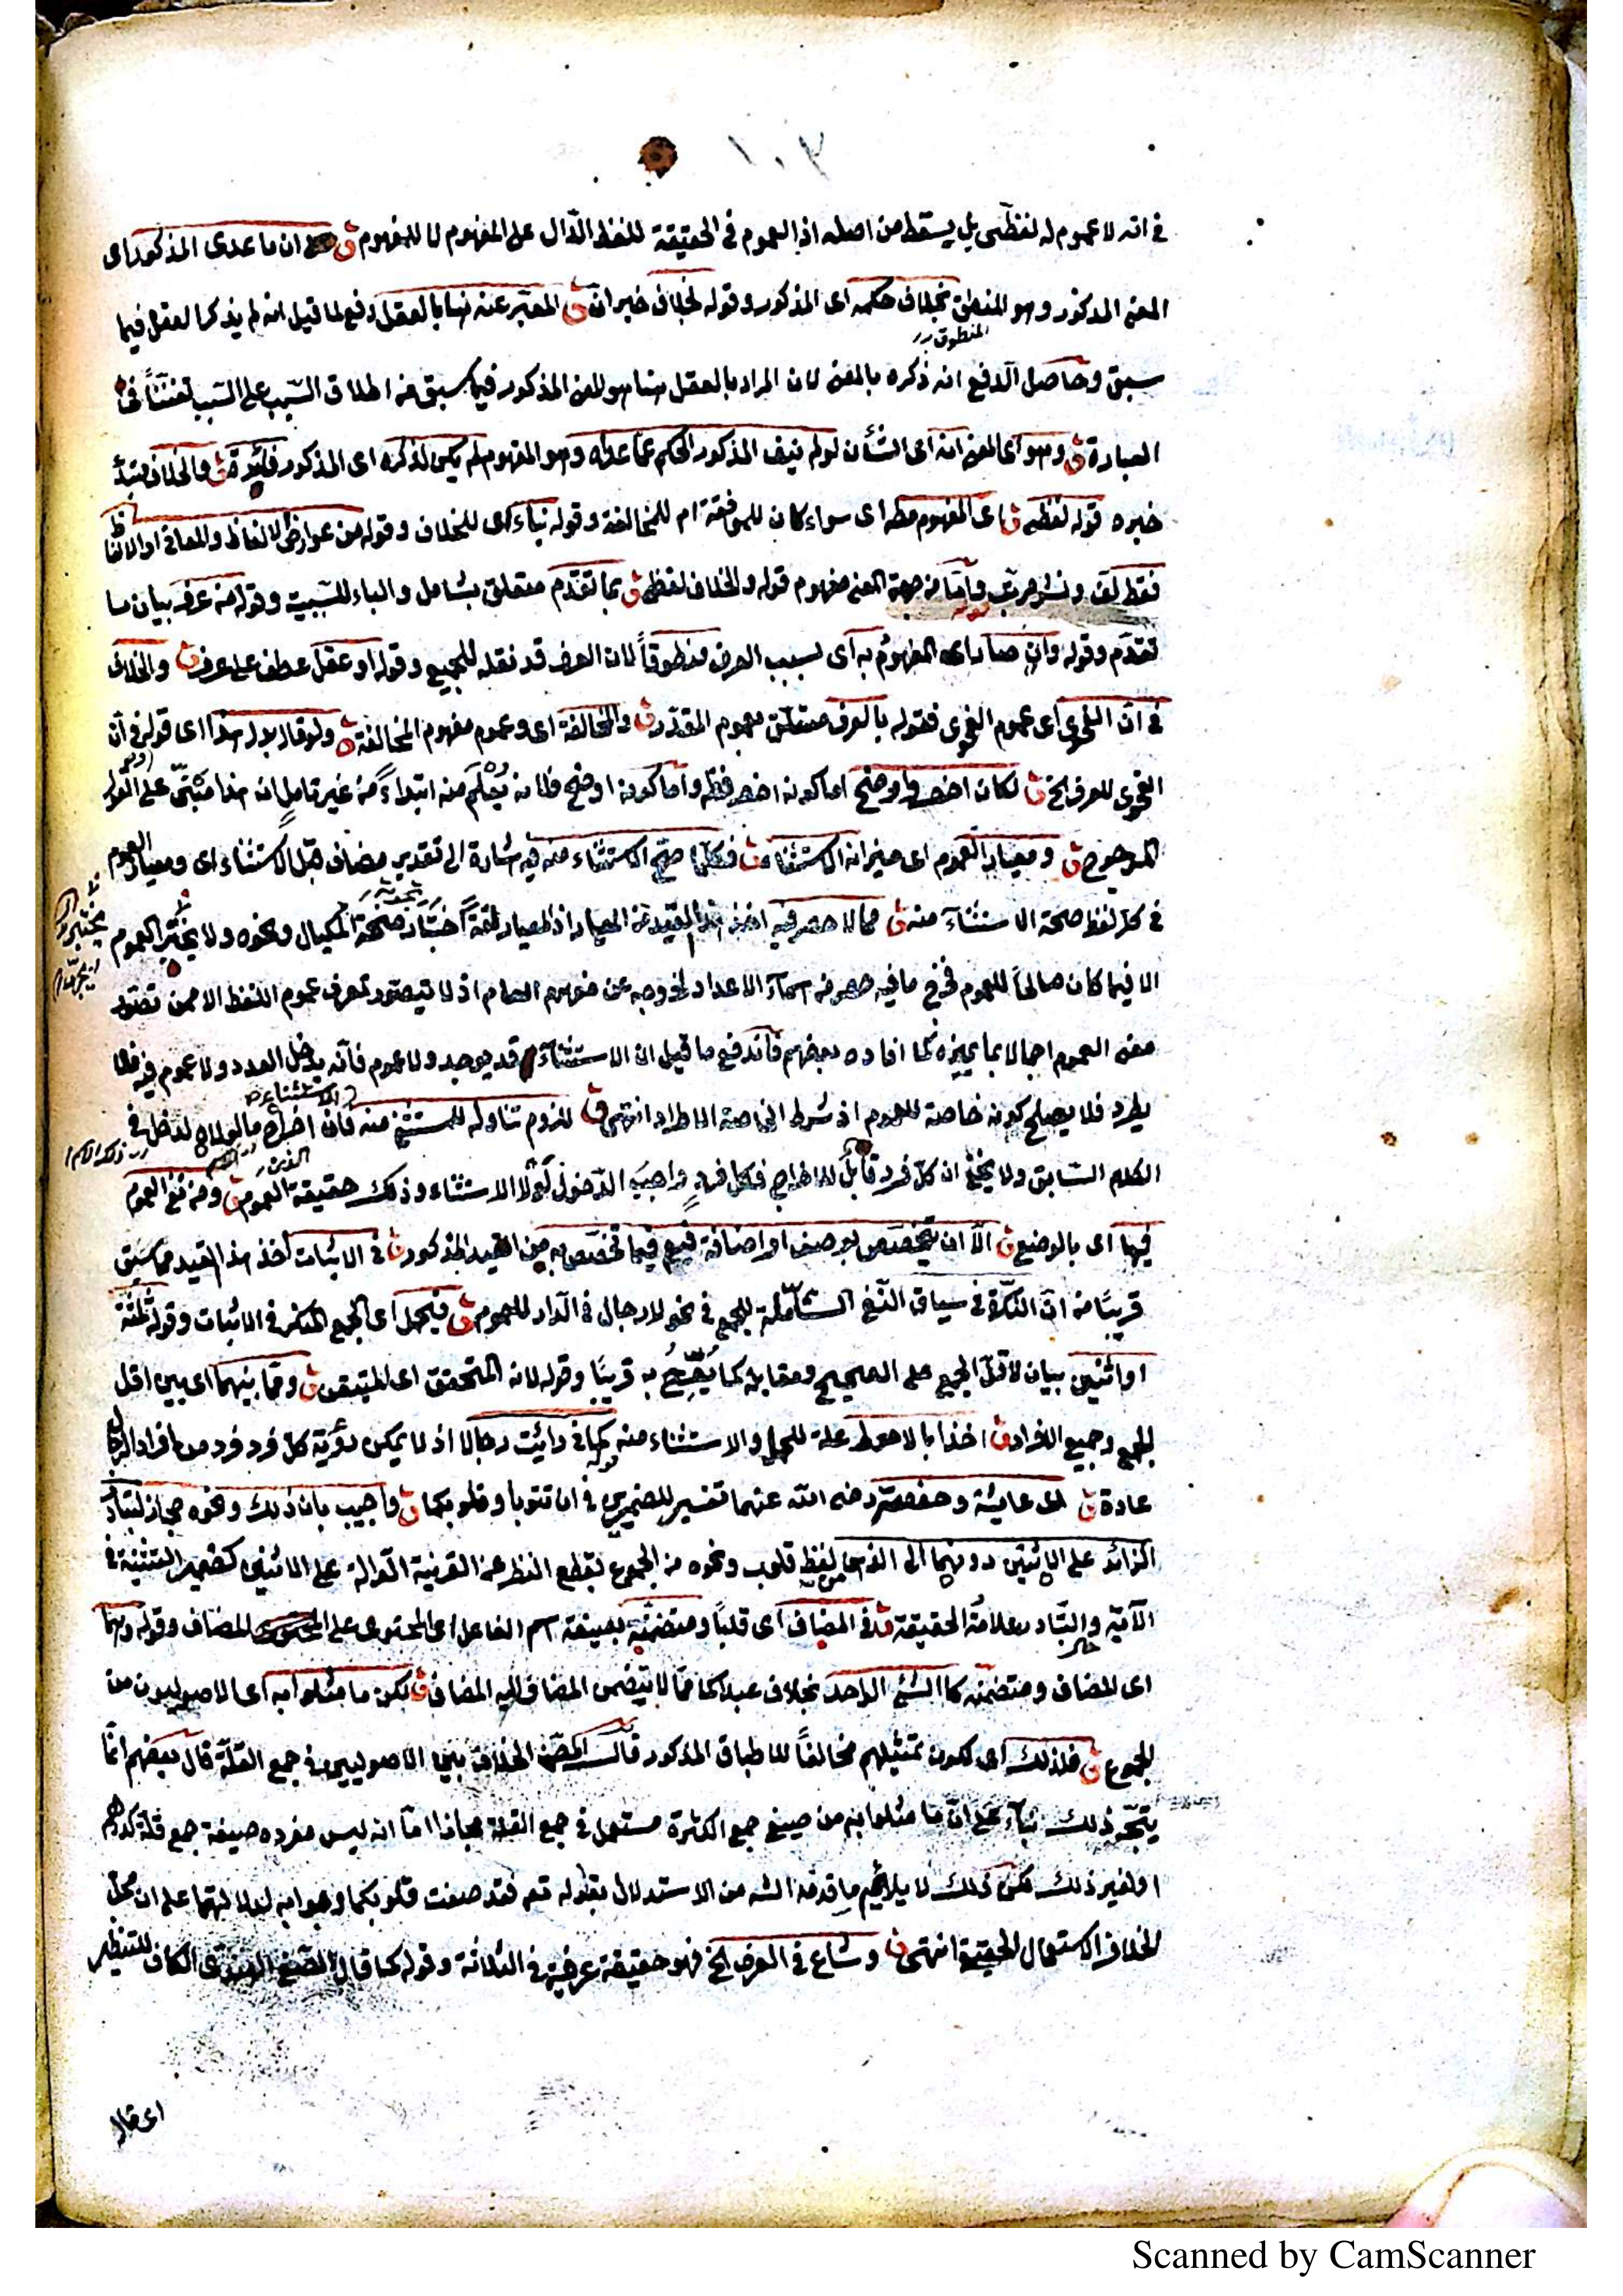 ١٠٣
في انه لا عموم له لفظى بل يسقط من اصله اذ العموم في الحقيقة للفظ الدّال على المفهوم لا للمفهوم ق ان ما عدى المذكور اى
المعنى المذكور وهو المنطوق بخلاف حكمه اى المذكور وقوله بخلاف خبر ان ق المعبّر عنه هنا بالعقل دفع لما قيل انه لم يذكر العقل فيما
المنطوق
سبق وحاصل الدفع انه ذكره بالمعنى لان المراد بالعقل هنا هو المعنى المذكور فيما سبق من اطلاق السّبب على السّبب تفنّناً في
العبارة ق وهو اى المعنى انه اى الشأن لو لم ينف المذكور الحكم عمّا عداه وهو المفهوم لم يكن لذكره اى المذكور فائدة ق والخلاف مبتدأ
خبره قوله لفظى ق اى المفهوم مطلقا اى سواء كان للموافقة ام للمخالفة وقوله بناء اى للخلاف وقوله من عوارض الالفاظ والمعانى او الالفاظ
فقط لف ونشر مرتب وامّا من جهة المعنى مفهوم قوله والخلاف لفظى ق بما تقدّم متعلق بشامل والباء للسّببية وقوله من عرف بيان ما
تقدّم وقوله وان صار اى المفهوم به اى بسبب العرف منطوقاً لان العرف قد نقله للجميع وقوله او عقل عطف على عرف ق والخلاف
في انّ الفحوى اى عموم الفحوى فقوله بالعرف متعلق بعموم المقدّر ق والمخالفة اى وعموم مفهوم المخالفة ق ولو قال بدل هذا اى قوله في أن
الفحوى للعرف الخ ق لكان اخصر واوضح اما كونه اخصر فظ واما كونه اوضح فلانه يُعْلَم منه ابتداءً من غير تامل ان هذا مبنىّ على القول
المرجوح ق ومعيار العموم اى ميزانه الاستثناء ق فكلّ ما صحّ الاستثناء منه فيه اشارة الى تقدير مضاف قبل الاستثناء اى ومعيار العموم
في كلّ لفظ صحة الاستثناء منه ق مما لا حصر فيه اخذ هذا القيد من المعيار اذ المعيار لغةً اختبار صحّة المكيال ونحوه ولا يختبر العموم
الا فيما كان صالحاً للعموم فخرج ما فيه حصر من اسماء الاعداد لخروجه عن مفهوم العام اذ لا يتصوّر تعرف عموم اللفظ الا ممن تصوّر
معنى العموم اجمالا بما يميزه كما افاده بعضهم فاندفع ما قيل ان الاستثناء قد يوجد ولا عموم فانّه يدخل العدد ولا عموم فيه فلا
يطرد فلا يصلح كونه خاصة للعموم اذ شرط الخاصة الاطراد انتهى ق للزوم تناوله للمستثنى منه فان اخراج ما لولاه لدخل في
الاستثناء
الكلام السّابق ولا يخفى ان كلّ فرد قابلٌ للاخراج فكل فرد واجب الدّخول لولا الاستثناء وذلك حقيقة العموم ق ومن نفى العموم
فيها اى بالوضع ق الّا ان يتخصّص بوصف او اضافة فيعم فيما تخصّص به من القيد المذكور ق في الاثبات اخذ هذا القيد مما سبق
قريبًا من انّ النكرة في سياق النّفى الشّاملة للجمع في نحو لا رجال في الدّار للعموم ق فيحمل اى الجمع المنكر في الاثبات وقوله ثلثة
او اثنين بيان لاقلّ الجمع على الصحيح ومقابله كما يُصَرِّحُ به قريبًا وقوله لانه المتحقق اى المتيقن ق وما بينهما اى بين اقل
الجمع وجميع الافراد ق اخذا بالاحوط علة للحمل والاستثناء منه كما في رأيت رجالا اذ لا يمكن رؤية كلّ فرد فرد من افراد الرجال
عادة ق اى عايشة وحفصة رضى الله عنهما تفسير للضميرين في ان تتوبا وقلوبكما ق واجيب بان ذلك ونحوه مجاز لتبادر
الزائد على الاثنين دونهما الى الذهن لفظ قلوب ونحوه من الجموع بقطع النظر عن القرينة الدّالة على الاثنين كضمير التثنية في
الآية والتّبادر علامة الحقيقة ق في المضاف اى قلباً ومتضمّنه بصيغة اسم الفاعل اى المحتوى على المضاف وقوله وهما
اى المضاف ومتضمنه كالشئ الواحد بخلاف عبداكما ممّا لا يتضمن المضاف اليه المضاف ق لكن ما مثلوا به اى الاصوليون من
الجموع ق فلذلك اى لكون تمثيلهم مخالفاً للاطباق المذكور قال المصّ الخلاف بين الاصوليين في جمع القلّة قال بعضهم انّما
يتجّه ذلك بناء على انّ ما مثلوا به من صيغ جمع الكثرة مستعمل في جمع القلة مجازا امّا انه ليس مفرده صيغة جمع قلة كدراهم
او لغير ذلك لكن ذلك لا يلائم ما قدمه الشه من الاستدلال بقوله تعم فقد صغت قلوبكما وجوابه لدلالتهما على ان محلّ
الخلاف الاستعمال الحقيقى انتهى ق وشاع في العرف الخ فهو حقيقة عرفية في الثلاثة وقوله كما قال الصّفى الهندى الكاف للتنظير
اى قال
Scanned by CamScanner